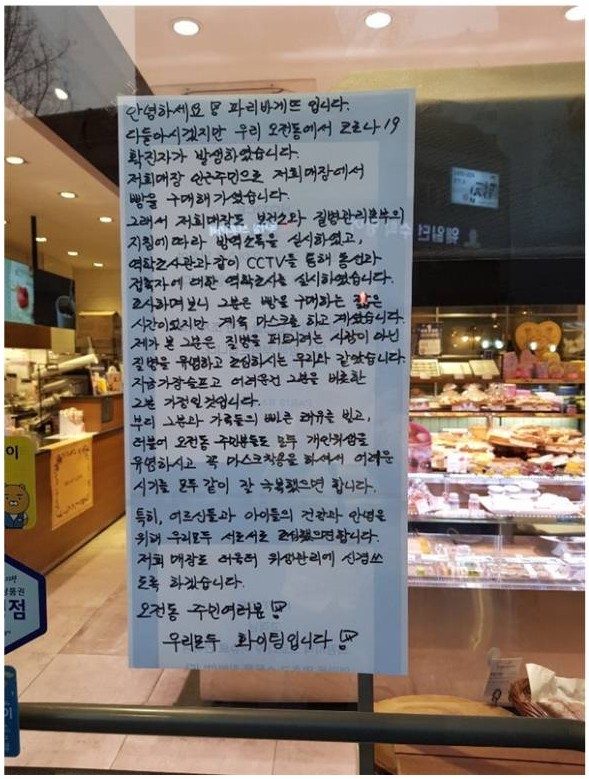 안녕하세요 파리바게뜨 입니다.
다들아시겠지만 우리 오전동에서 코로나 19
확진자가 발생하였습니다.
저희매장 인근주민으로 저희매장에서
빵을 구매해가셨습니다.
그래서 저희매장도 보건소와 질병관리본부의
지침에따라 방역소독을 실시하였고,
역학조사관과같이 CCTV을 통해 동선과
접촉자에 대한 역학조사를 실시하였습니다.
조사하며보니 그분은 빵을 구매하는 짧은
시간이었지만 계속 마스크를 하고 계셨습니다.
제가 본 그분은 질병을 퍼트리려는 사람이 아닌
질병을 유념하고 조심하시는 우리와 같았습니다.
지금가장슬프고 어려운건 그분을 비롯한
그분 가정일것입니다.
부디 그분과 가족들의 빠른 쾌유를 빌고,
더불어 오전동 주민분들도 모두 개인위생을
유념하시고 꼭 마스크착용을 하셔서 어려운
시기를 모두 같이 잘 극복했으면 합니다.
특히, 어르신들과 아이들의 건강과 안녕을
위해 우리모두 서로서로 조심했으면합니다.
저희 매장도 더욱더 위생관리에 신경쓰
도록 하겠습니다.
오전동 주민여러분
우리모두 화이팅입니다